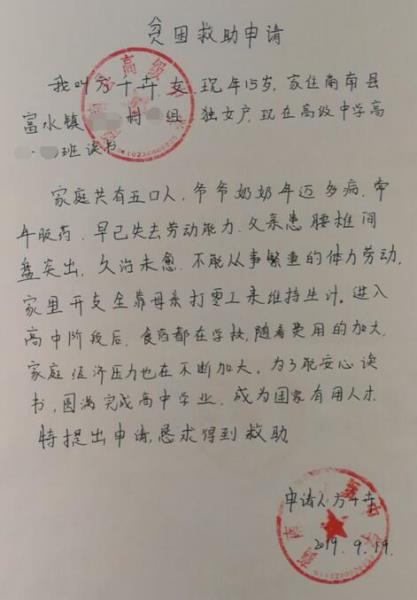 贫困救助申请
我叫方千卉,女,现年15岁,家住商南县
富水镇 村 组 独女户,现在高级中学高
一. 班读书.
家庭共有五口人,爷爷奶奶年迈多病,常
年服药,早已失去劳动能力,父亲患腰椎间
盘突出,久治未愈,不能从事繁重的体力劳动,
家里开支全靠母亲打零工来维持生计。进入
高中阶段后,食宿都在学校,随着费用的加大,
家庭经济压力也在不断加大。为了能安心读
书,圆满完成高中学业,成为国家有用人才
特提出申请,恳求得到救助
申请人:方千卉
2019.9.19.